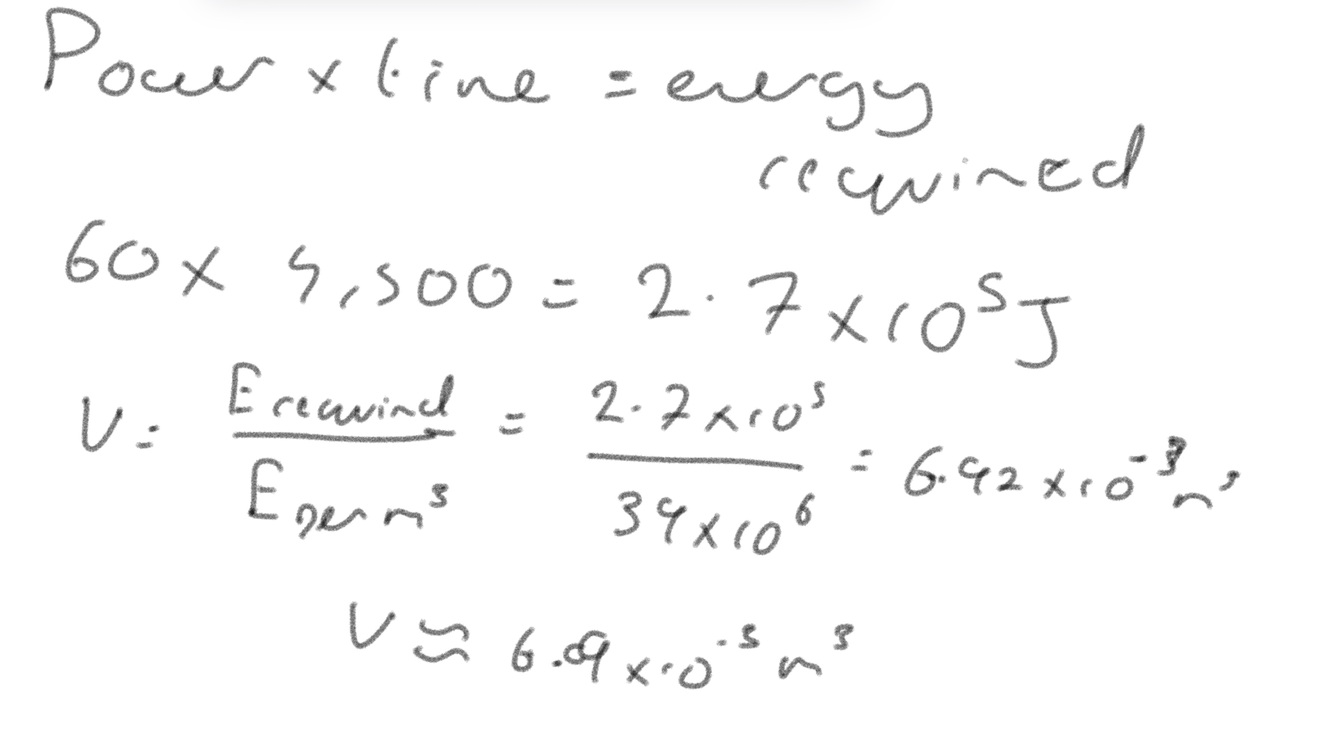 Power × time = energy
required
60 × 4,500 = 2.7 × 10⁵ J
V = E required / E per m³ = 2.7 × 10⁵ / 39 × 10⁶ = 6.92 × 10⁻³ m³
V ≈ 6.9 × 10⁻³ m³